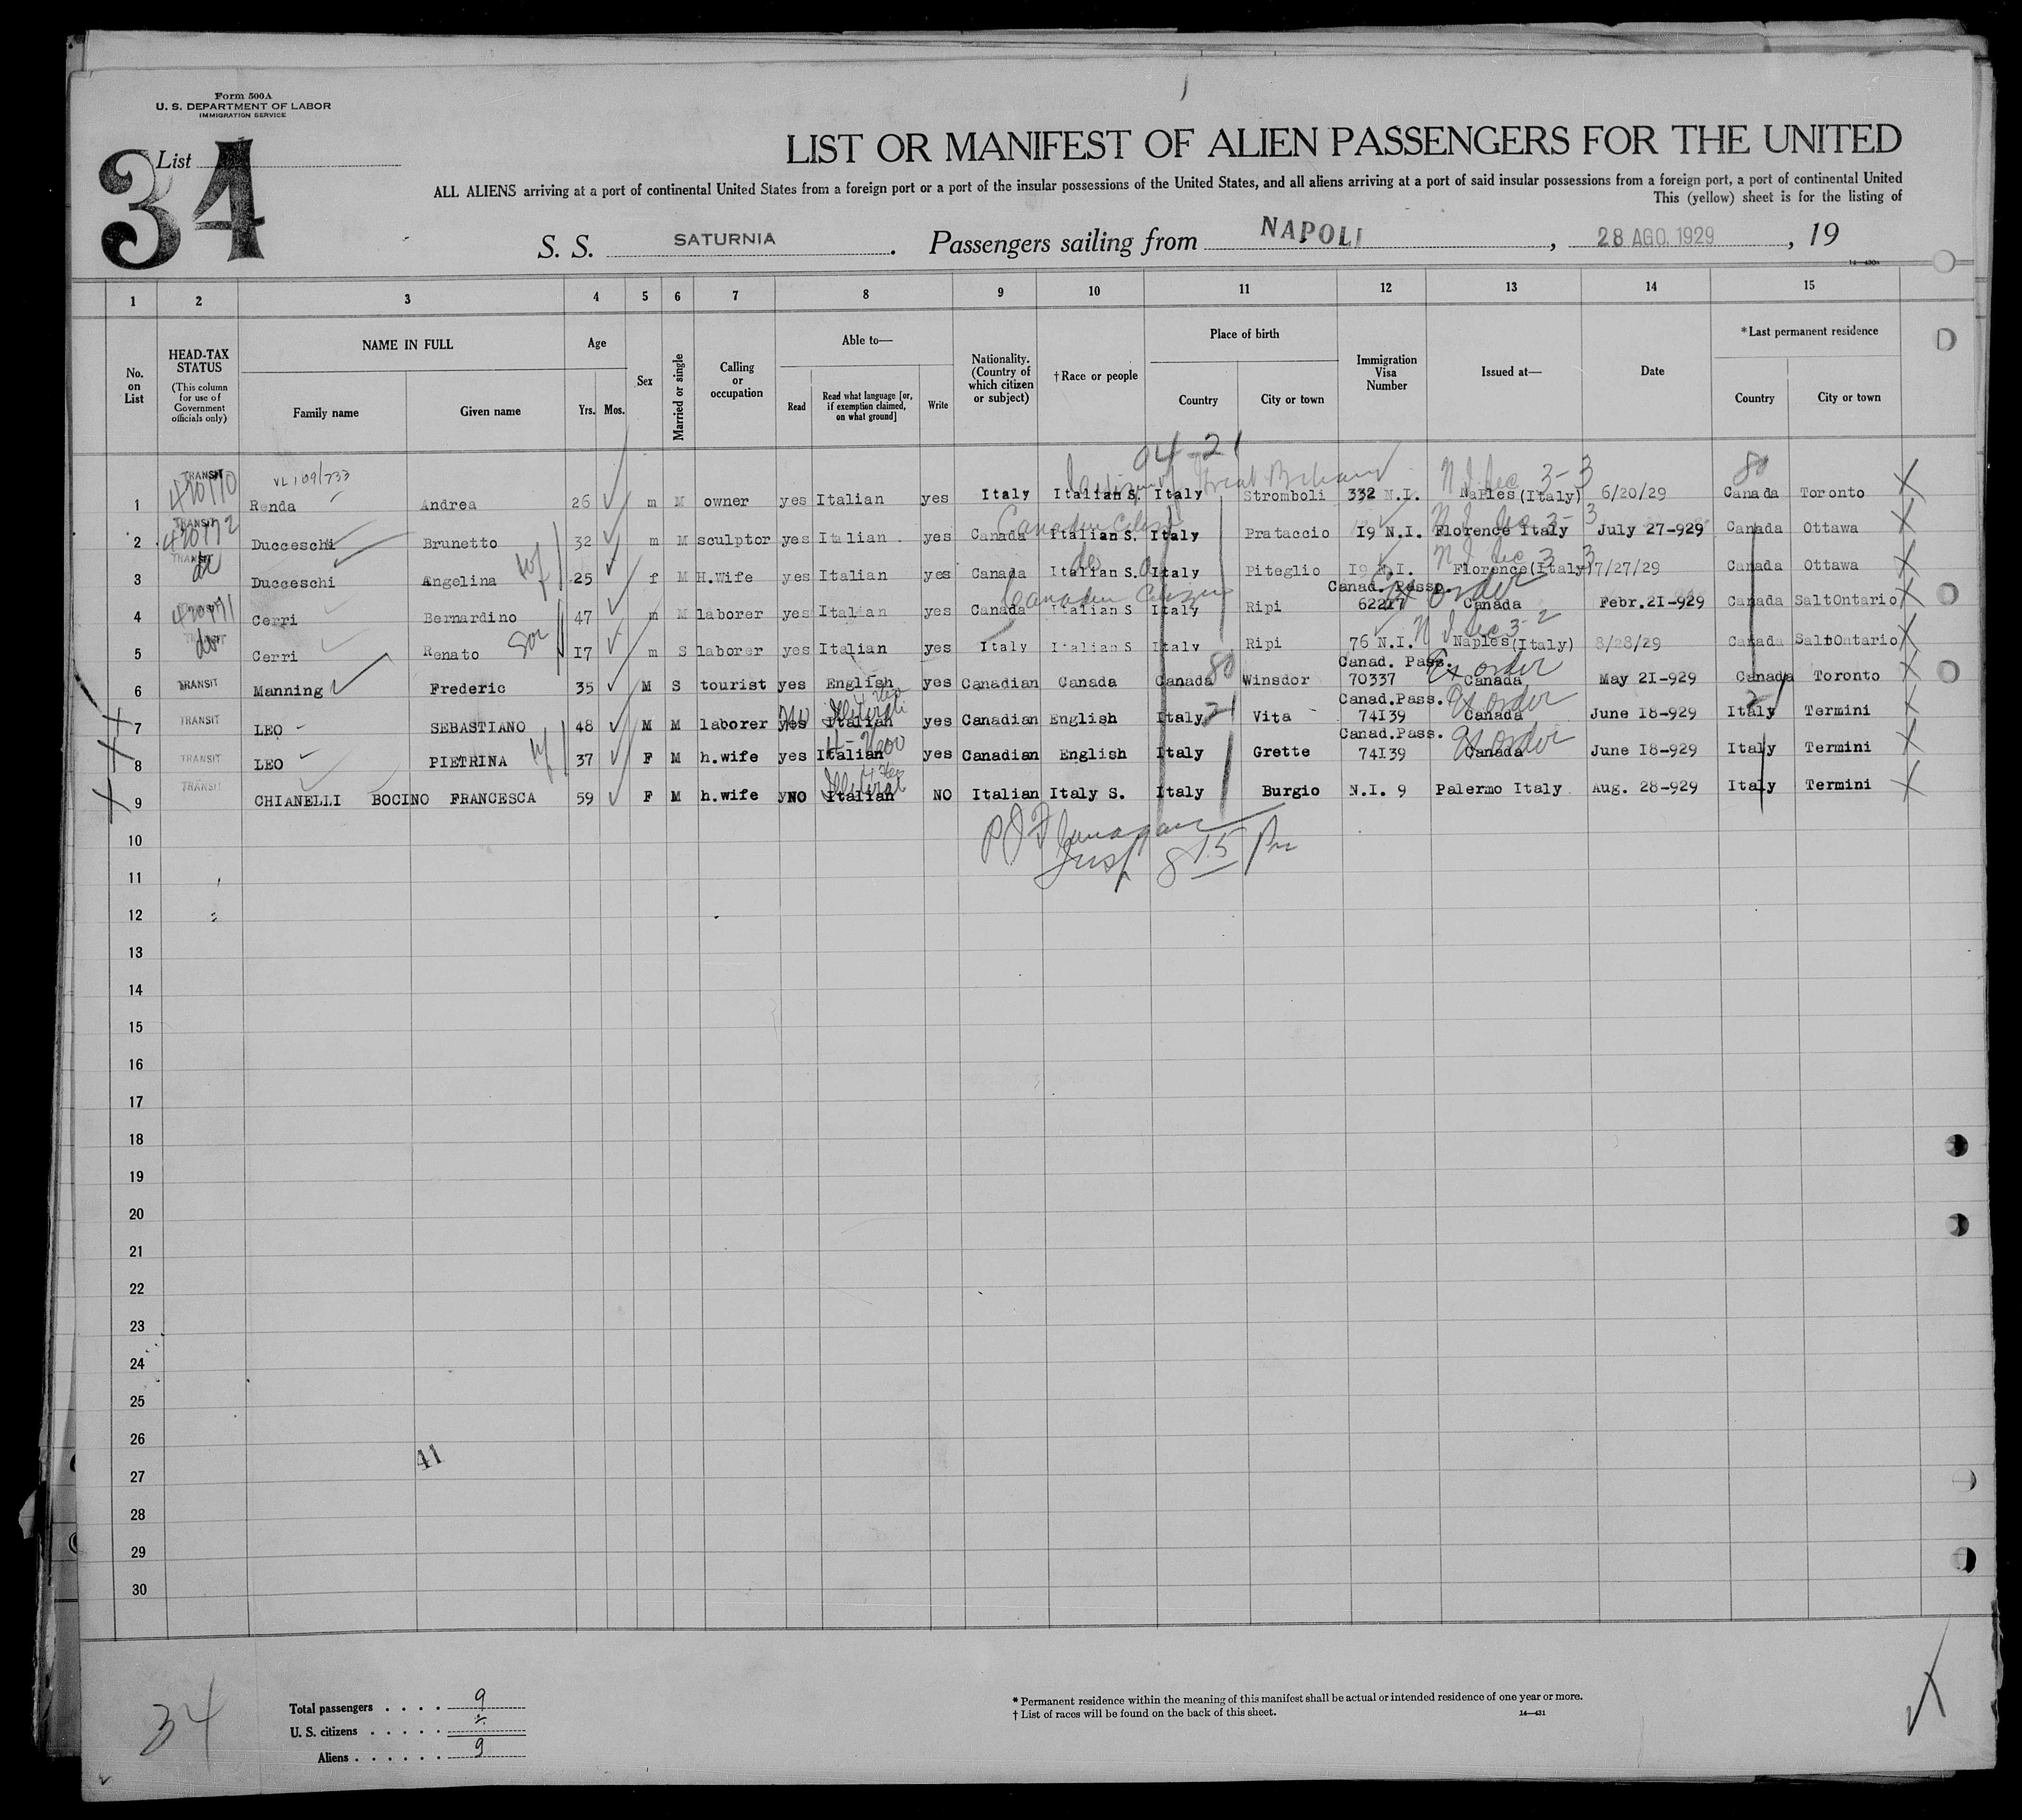 Form 500A
U. S. DEPARTMENT OF LABOR
IMMIGRATION SERVICE
List
34
LIST OR MANIFEST OF ALIEN PASSENGERS FOR THE UNITED
ALL ALIENS arriving at a port of continental United States from a foreign port or a port of the insular possessions of the United States, and all aliens arriving at a port of said insular possessions from a foreign port, a port of continental United
This (yellow) sheet is for the listing of
S. S. SATURNIA. Passengers sailing from NAPOLI, 28 AGO. 1929, 19
14—430a
1 2 3 4 5 6 7 8 9 10 11 12 13 14 15
No. on List
HEAD-TAX STATUS
(This column for use of Government officials only)
NAME IN FULL
Family name
Given name
Age
Yrs. Mos.
Sex
Married or single
Calling or occupation
Able to—
Read
Read what language [or, if exemption claimed, on what ground]
Write
Nationality. (Country of which citizen or subject)
†Race or people
Place of birth
Country
City or town
Immigration Visa Number
Issued at—
Date
*Last permanent residence
Country
City or town
04-21
TRANSIT VL 109/733 Great Britain N I Sec 3-3 80
1 420170 Renda Andrea 26 m M owner yes Italian yes Italy Italian S. Italy Stromboli 332 N.I. Naples (Italy) 6/20/29 Canada Toronto
TRANSIT Canadian N I Sec 3-3
2 420172 Ducceschi Brunetto 32 m M sculptor yes Italian yes Canada Italian S. Italy Prataccio I9 N.I. Florence Italy July 27-929 Canada Ottawa
TRANSIT do N I Sec 3 3
3 do Ducceschi Angelina wf 25 f M H.Wife yes Italian yes Canada Italian S. Italy Piteglio I9 N.I. Florence (Italy) 7/27/29 Canada Ottawa
Canadian Citizens Canad. Passp. Ex order
4 420171 Cerri Bernardino 47 m M laborer yes Italian yes Canada Italian S Italy Ripi 62217 Canada Febr.2I-929 Canada SaltOntario
TRANSIT N I Sec 3-2
5 do Cerri Renato Son I7 m S laborer yes Italian yes Italy Italian S Italy Ripi 76 N.I. Naples (Italy) 8/28/29 Canada SaltOntario
80 Canad. Pass. Ex order
6 TRANSIT Manning Frederic 35 M S tourist yes English yes Canadian Canada Canada Winsdor 70337 Canada May 2I-929 Canada Toronto
Canad.Pass. Ex order
7 TRANSIT LEO SEBASTIANO 48 M M laborer yes no Italian yes Canadian English Italy 21 Vita 74I39 Canada June I8-929 Italy Termini
Canad.Pass. Ex order
8 TRANSIT LEO PIETRINA wf 37 F M h.wife yes Italian yes Canadian English Italy Grette 74I39 Canada June I8-929 Italy Termini
9 TRANSIT CHIANELLI BOCINO FRANCESCA 59 F M h.wife NO Italian NO Italian Italy S. Italy Burgio N.I. 9 Palermo Italy Aug. 28-929 Italy Termini
10
Insp 8 15 Pm
11
12
13
14
15
16
17
18
19
20
21
22
23
24
25
26
41
27
28
29
30
34
Total passengers . . . . 9
U. S. citizens . . . . .
Aliens . . . . . . 9
* Permanent residence within the meaning of this manifest shall be actual or intended residence of one year or more.
† List of races will be found on the back of this sheet.
14—431